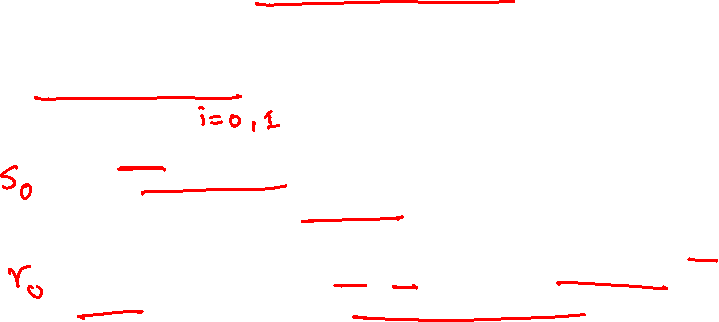 i=0,1
S0
r0